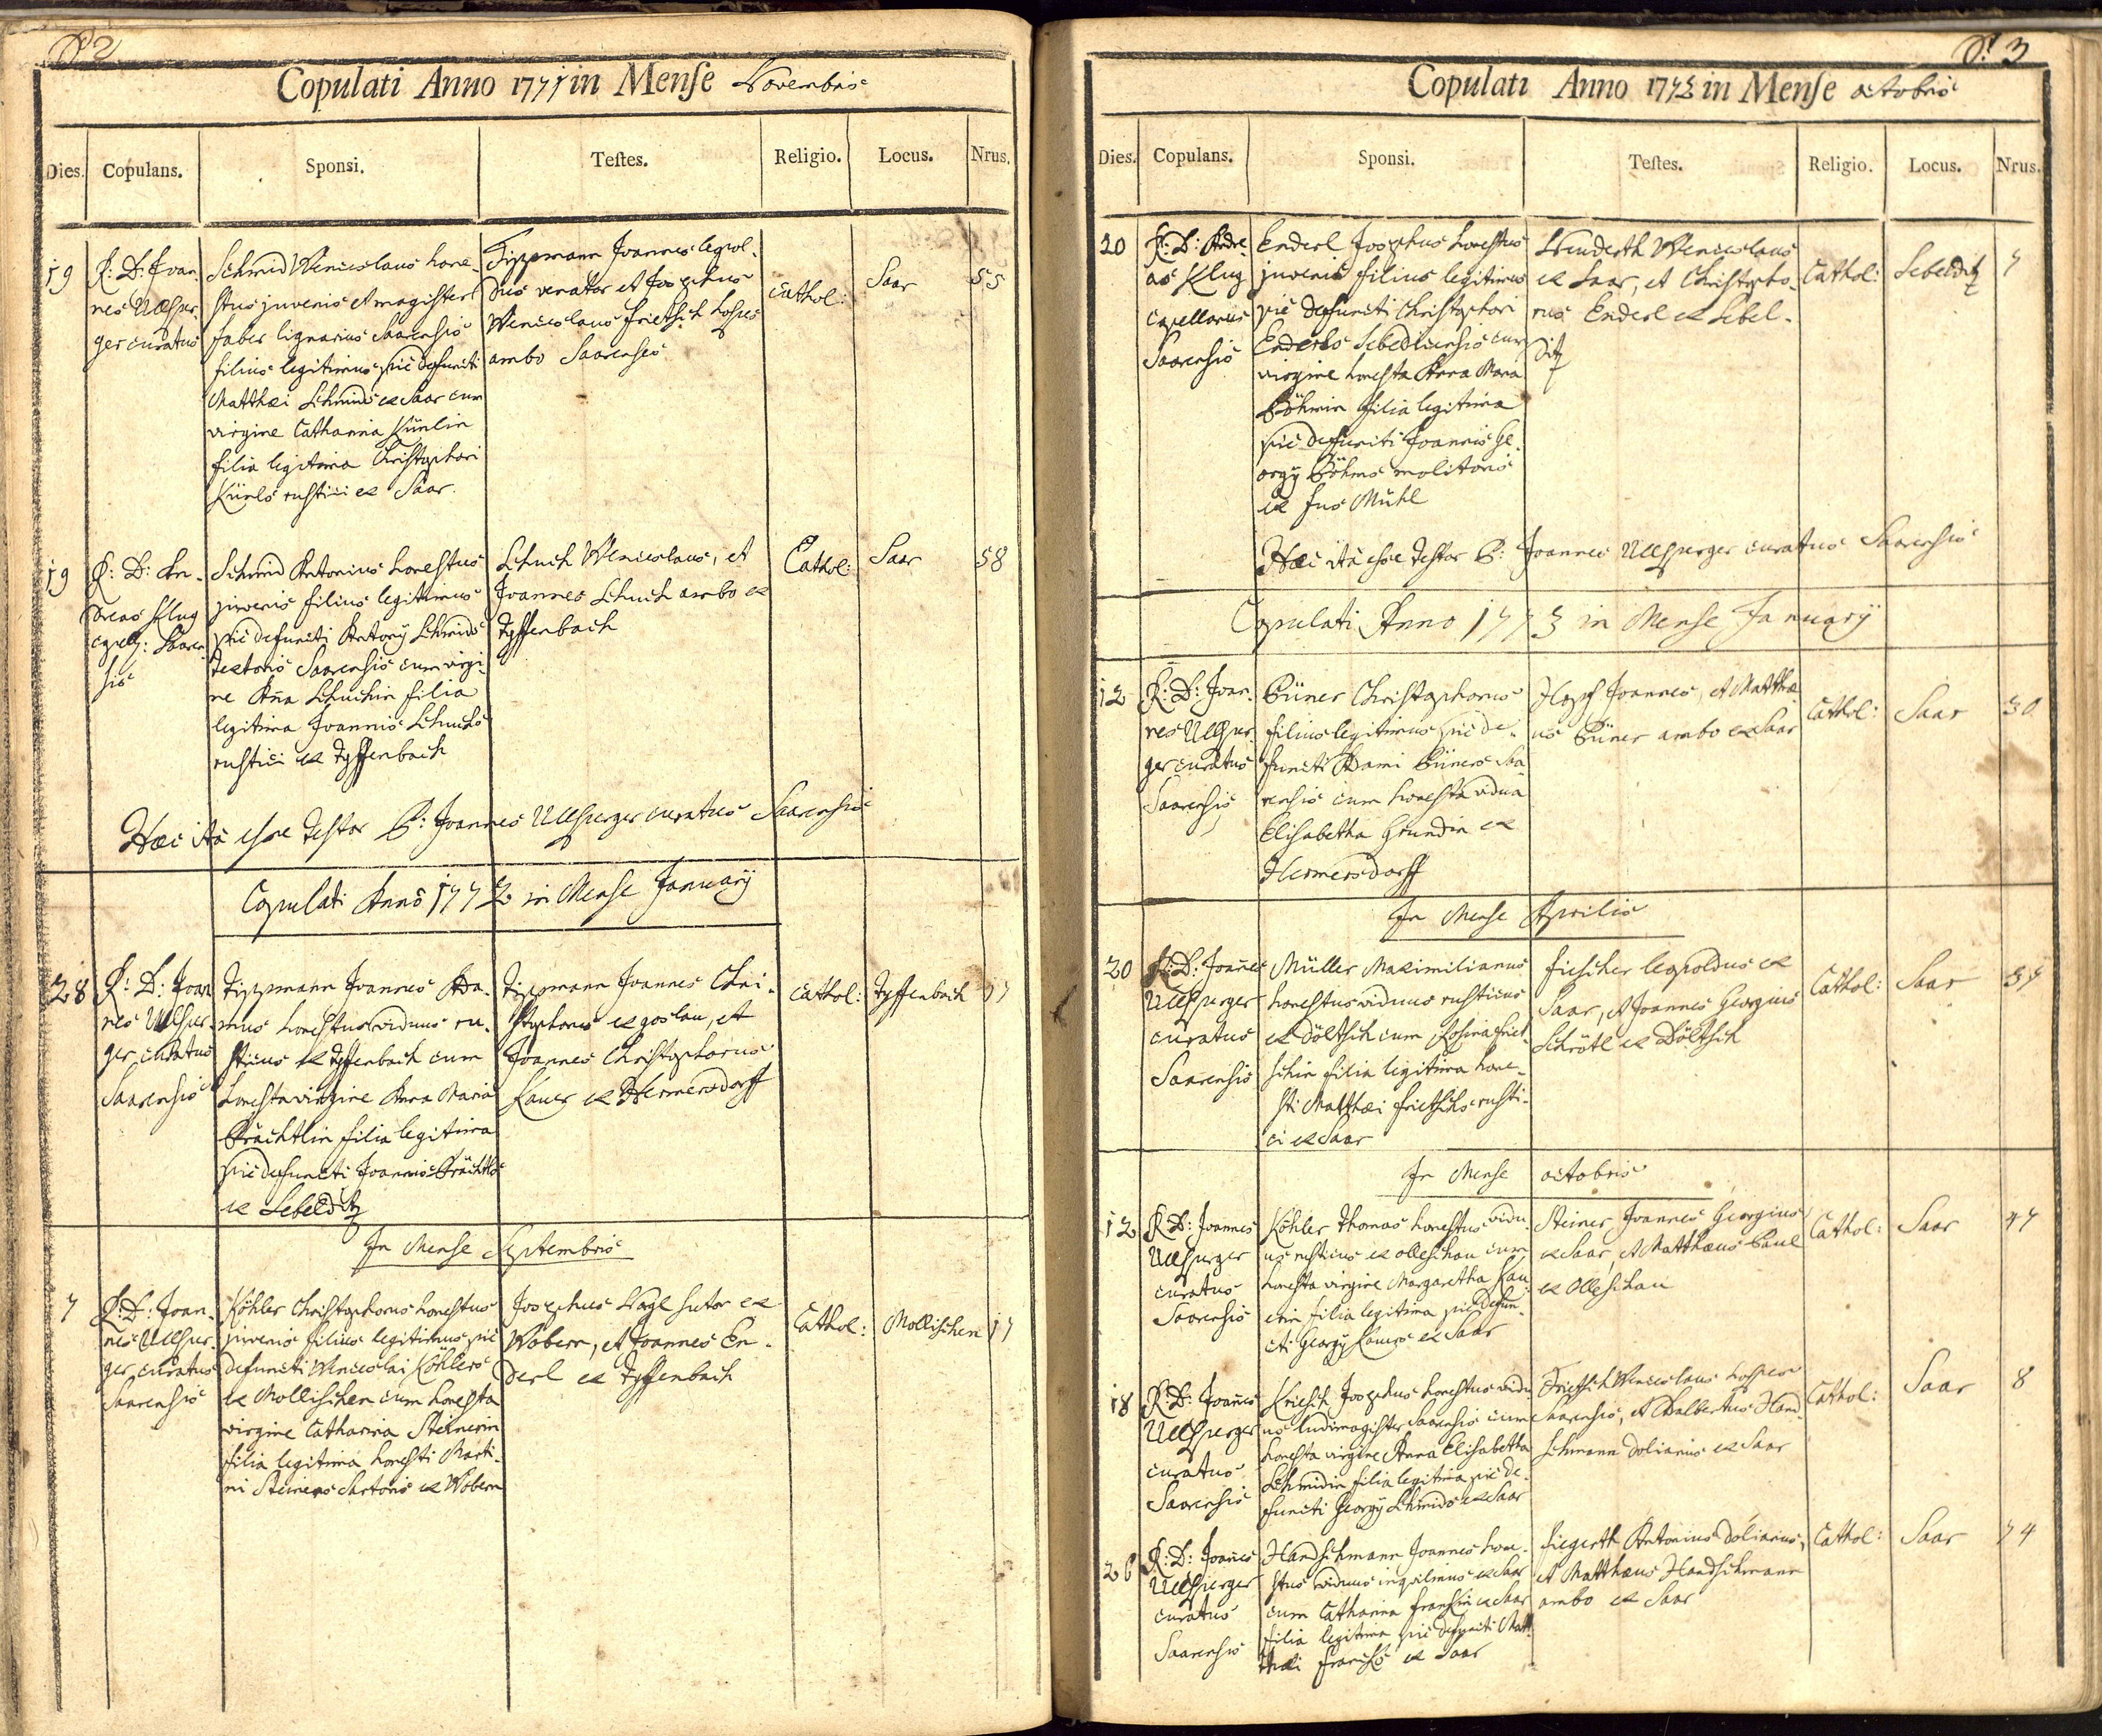 P. 2
Copulati Anno 1771 in Mense Novembris
Dies. Copulans. Sponsi. Testes. Religio. Locus. Nrus.
19
R: D: Joan
nes Ullsper
ger curatus
Schmid Wenceslaus hone-
stus juvenis et magister
faber lignarius Saarensis
filius legitimus pie defuncti
Matthaei Schmids ex Saar cum
virgine Catharina Künlin
filia legitima Christophori
Künls rustici ex Saar.
Tippmann Joannes legpol-
dus venator et Josephus
Wenceslaus Frietsch hospes
ambo Saarenses
Cathol:
Saar
55
19
R: D: An-
dreas Klug
capell: Saaren-
sis
Schmid Antonius honestus
juvenis filius legitimus
pie defuncti Antonÿ Schmids
textoris Saarensis cum virgi-
ne Aña Schuchin filia
legitima Joannis Schuchs
rustici ex Tyffenbach
Schuch Wenceslaus, et
Joannes Schuch ambo ex
Tyffenbach
Cathol:
Saar
58
Haec ita esse testor P: Joannes Ullsperger curatus Saarensis
Copulati Anno 1772 in Mense Januarÿ
28
R: D: Joan
nes Ullsper-
ger curatus
Saarensis
Tippmann Joannes Ada-
mus honestus viduus ru-
sticus ex Tyffenbach cum
honesta virgine Anna Maria
Prächtlin filia legitima
pie defuncti Joannis Prächtls
ex Sebelditz
Tippmann Joannes Chri-
stophorus ex goslau, et
Joannes Christophorus
Lauer ex Hermersdorff
Cathol:
Tyffenbach
17
In Mense Septembris
7
R: D: Joan-
nes Ullsper-
ger curatus
Saarensis
Köhler Christophorus honestus
juvenis filius legitimus pie
defuncti Wenceslai Köhlers
ex Mollischen cum honesta
virgine Catharina Steinerin
filia legitima honesti Marti-
ni Steiners Sartoris ex Wobern
Josephus Nagl sutor ex
Wobern, et Joannes En-
derl ex Tyffenbach
Cathol:
Mollischen
17
P. 3
Copulati Anno 1772 in Mense octobris
Dies. Copulans. Sponsi. Testes. Religio. Locus. Nrus.
20
R: D: Andre-
as Klug
capellanus
Saarensis
Enderl Josephus honestus
juvenis filius legitimus
pie defuncti Christophori
Enderls Sebeldicensis cum
virgine honesta Anna Maria
Böhmin filia legitima
pie defuncti Joannis Ge-
orgÿ Böhms molitoris
ex Mühl
Wenceslaus
ex Saar, et Christopho-
rus Enderl ex Sebel-
ditz
Cathol:
Sebelditz
7
Haec ita esse testor P: Joannes Ullsperger curatus Saarensis
Copulati Anno 1773 in Mense Januarÿ
12
R: D: Joan-
nes Ullsper
ger curatus
Saarensis
Püner Christophorus
filius legitimus pie de-
functi Adami Püners Saa-
rensis cum honesta vidua
Elisabetha Grundin ex
Hermersdorff
Hopf Joannes, et Matthae-
us Püner ambo ex Saar
Cathol:
Saar
30
In Mense Aprilis
20
R: D: Joañes
Ullsperger
curatus
Saarensis
Müller Maximilianus
honestus viduus rusticus
ex Döltsch cum Rosina Friet-
schin filia legitima hone-
sti Matthaei Frietschs rusti-
ci ex Saar
Fischer leopoldus ex
Saar, et Joannes Georgius
Schrötl ex Döltsch
Cathol:
Saar
37
In Mense octobris
12
R: D: Joannes
Ullsperger
curatus
Saarensis
Köhler Thomas honestus vidu-
us rusticus ex olleschau cum
honesta virgine Margaretha Lau-
erin filia legitima pie defun-
cti Georgÿ Lauers ex Saar
Steiner Joannes Georgius
ex Saar, et Matthaeus Paul
ex Olleschau
Cathol:
Saar
47
18
R: D: Joañes
Ullsperger
curatus
Saarensis
Kriesch Josephus honestus vidu-
us ludimagister Saarensis cum
honesta virgine Anna Elisabetha
Schmidin filia legitima pie de-
functi Georgÿ Schmids ex Saar
Frietsch Wenceslaus hospes
Saarensis, et Adalbertus Hand-
schmann doliarius ex Saar
Cathol:
Saar
8
26
R: D: Joañes
Ullsperger
curatus
Saarensis
Handschmann Joannes hone-
stus viduus inquilinus ex Saar
cum Catharina Franckin ex Saar
filia legitima pie defuncti Matt-
thaei Francks ex Saar
Fiegerth Antonius doliarius,
et Matthaeus Handschmann
ambo ex Saar
Cathol:
Saar
74